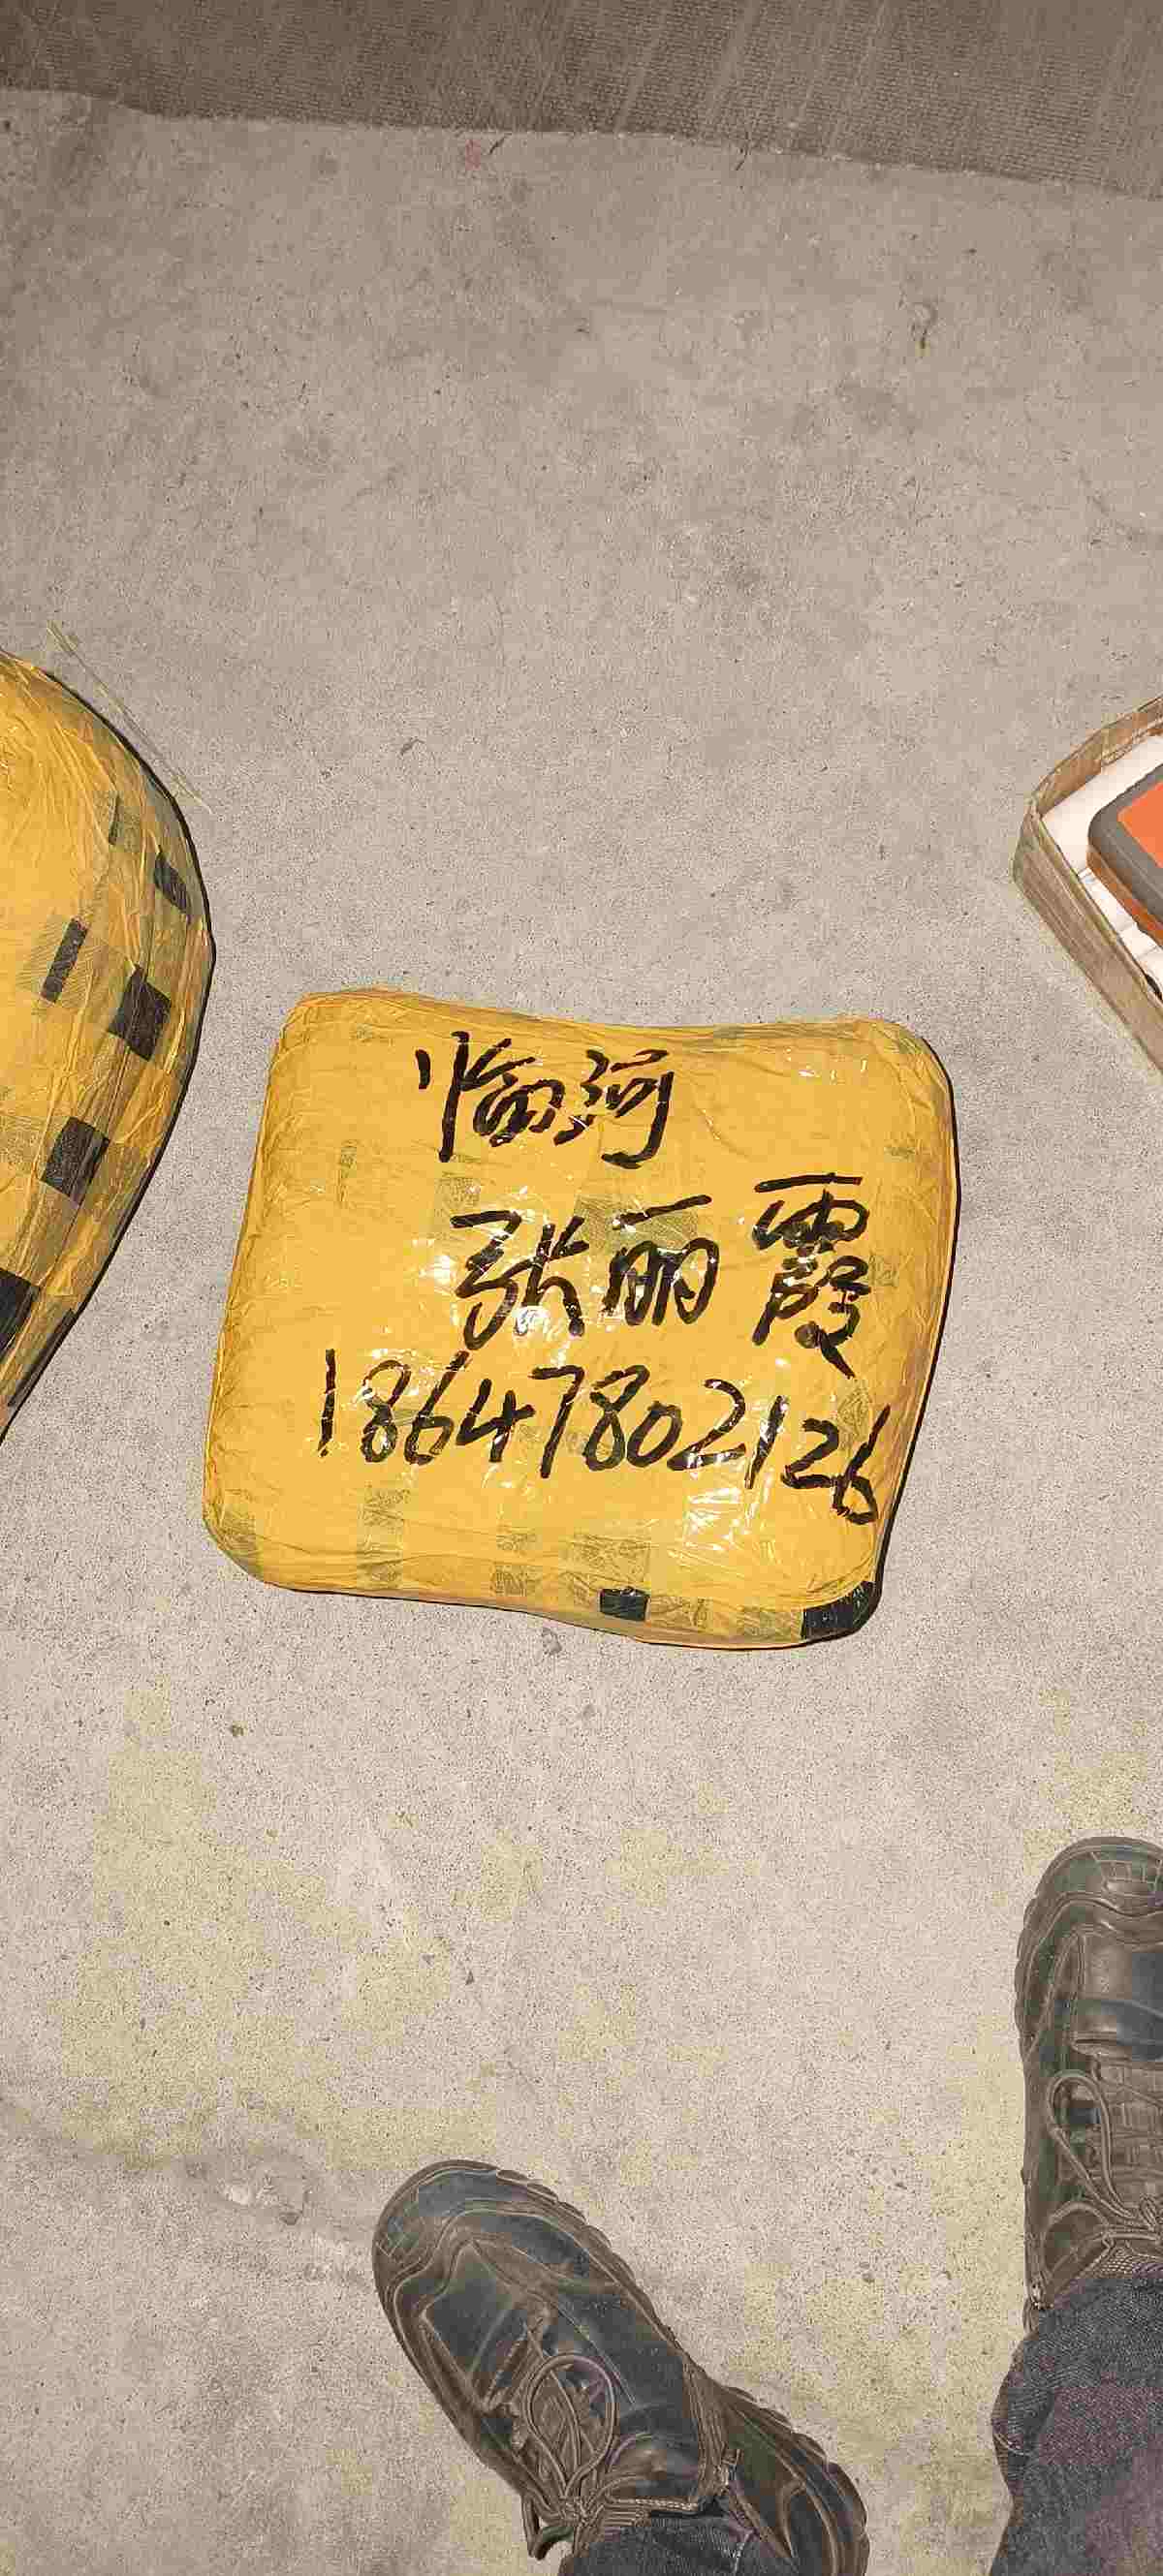 临河
张丽霞
18647802126